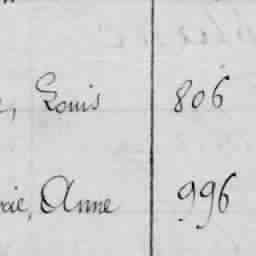 , Louis 806
rie, Anne 996